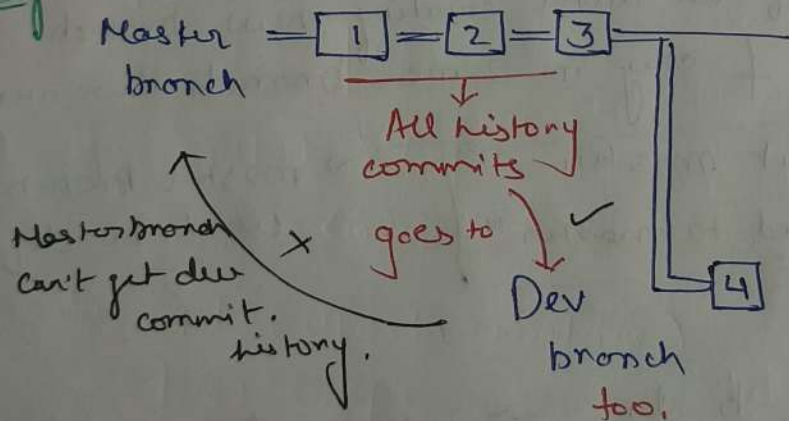 Master
branch
1
2
3
All history
commits
goes to
Dev
branch
too.
4
Master branch
can't get dev
commit.
history.